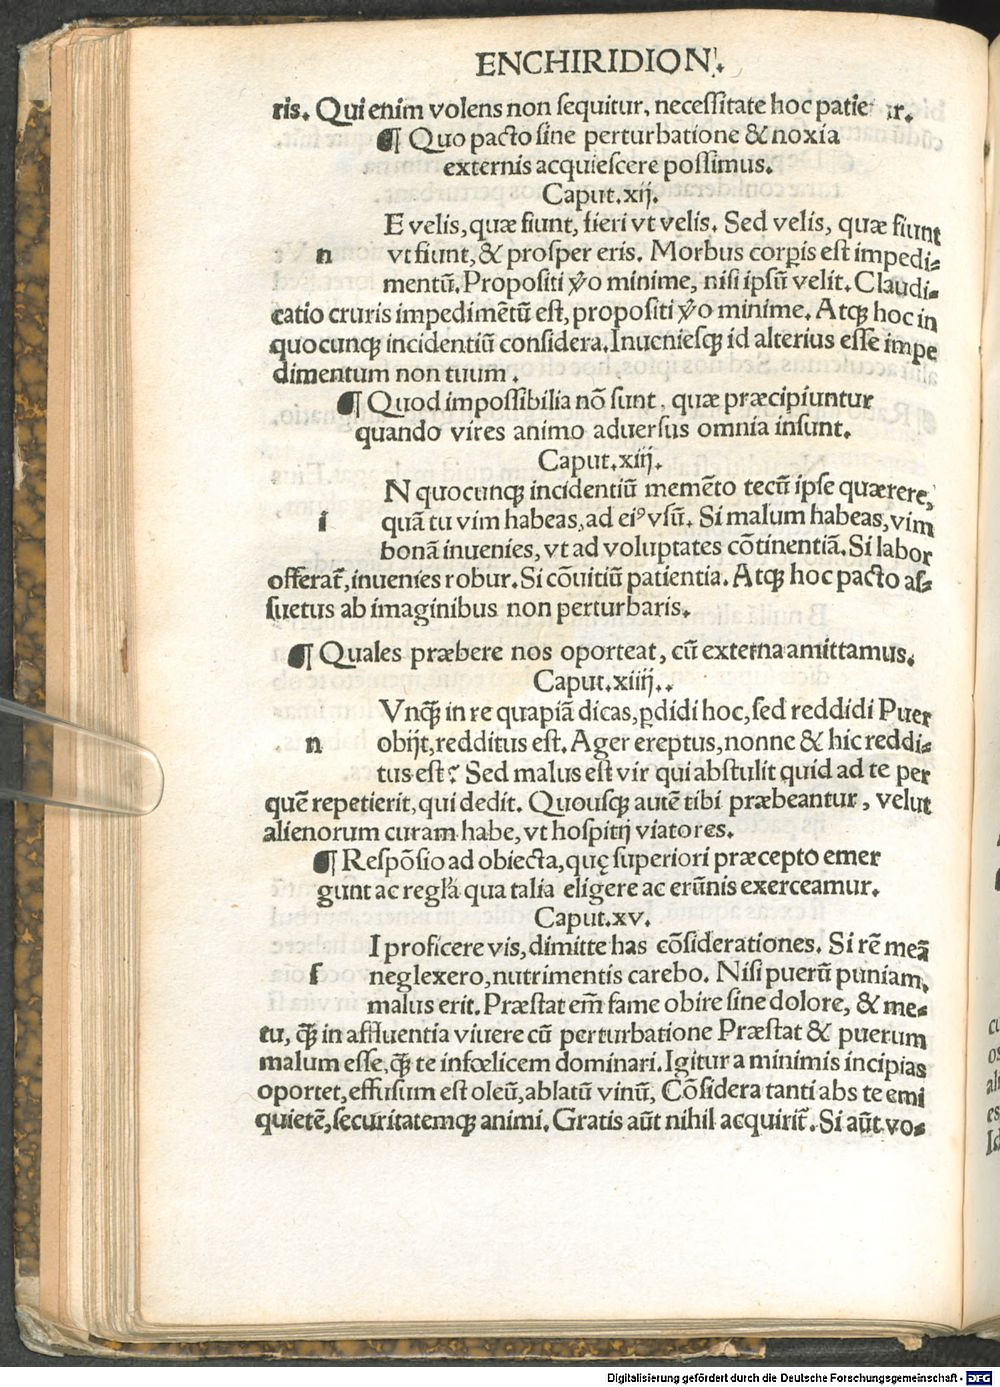 ENCHIRIDION.
ris. Qui enim volens non ſequitur, neceſſitate hoc patie r.
¶ Quo pacto ſine perturbatione & noxia
externis acquieſcere poſſimus.
Caput.xij.
E velis, quæ fiunt, fieri vt velis. Sed velis, quæ fiunt
n vt fiunt, & proſper eris. Morbus corꝑis eſt impedi⸗
mentū. Propoſiti ꝟo minime, niſi ipſū velit. Claudi⸗
catio cruris impedimētū eſt, propoſiti ꝟo minime. Atqꝫ hoc in
quocunqꝫ incidentiū conſidera. Inuenieſqꝫ id alterius eſſe impe
dimentum non tuum.
¶ Quod impoſſibilia nō ſunt, quæ præcipiuntur
quando vires animo aduerſus omnia inſunt.
Caput.xiij.
N quocunqꝫ incidentiū memēto tecū ipſe quærere,
i quā tu vim habeas, ad eiꝰ vſū. Si malum habeas, vim
bonā inuenies, vt ad voluptates cōtinentiā. Si labor
offerat̄, inuenies robur. Si cōuitiū patientia. Atqꝫ hoc pacto aſ⸗
ſuetus ab imaginibus non perturbaris.
¶ Quales præbere nos oporteat, cū externa amittamus.
Caput.xiiij..
Vnqꝫ̄ in re quapiā dicas, ꝑdidi hoc, ſed reddidi Puer
n obijt, redditus eſt. Ager ereptus, nonne & hic reddi⸗
tus eſt? Sed malus eſt vir qui abſtulit quid ad te per
quē repetierit, qui dedit. Quouſqꝫ autē tibi præbeantur, velut
alienorum curam habe, vt hoſpitij viatores.
¶ Reſpōſio ad obiecta, quę ſuperiori præcepto emer
gunt ac regl̄a qua talia eligere ac erūnis exerceamur.
Caput.xv.
I proficere vis, dimitte has cōſiderationes. Si rē meā
ſ neglexero, nutrimentis carebo. Niſi puerū puniam,
malus erit. Præſtat em̄ fame obire ſine dolore, & me⸗
tu, qꝫ̄ in affluentia viuere cū perturbatione Præſtat & puerum
malum eſſe, qꝫ̄ te infœlicem dominari. Igitur a minimis incipias
oportet, effuſum eſt oleū, ablatū vinū, Cōſidera tanti abs te emi
quietē, ſecuritatemqꝫ animi. Gratis aūt nihil acquirit̄. Si aūt vo⸗
Digitalisierung gefördert durch die Deutsche Forschungsgemeinschaft - DFG